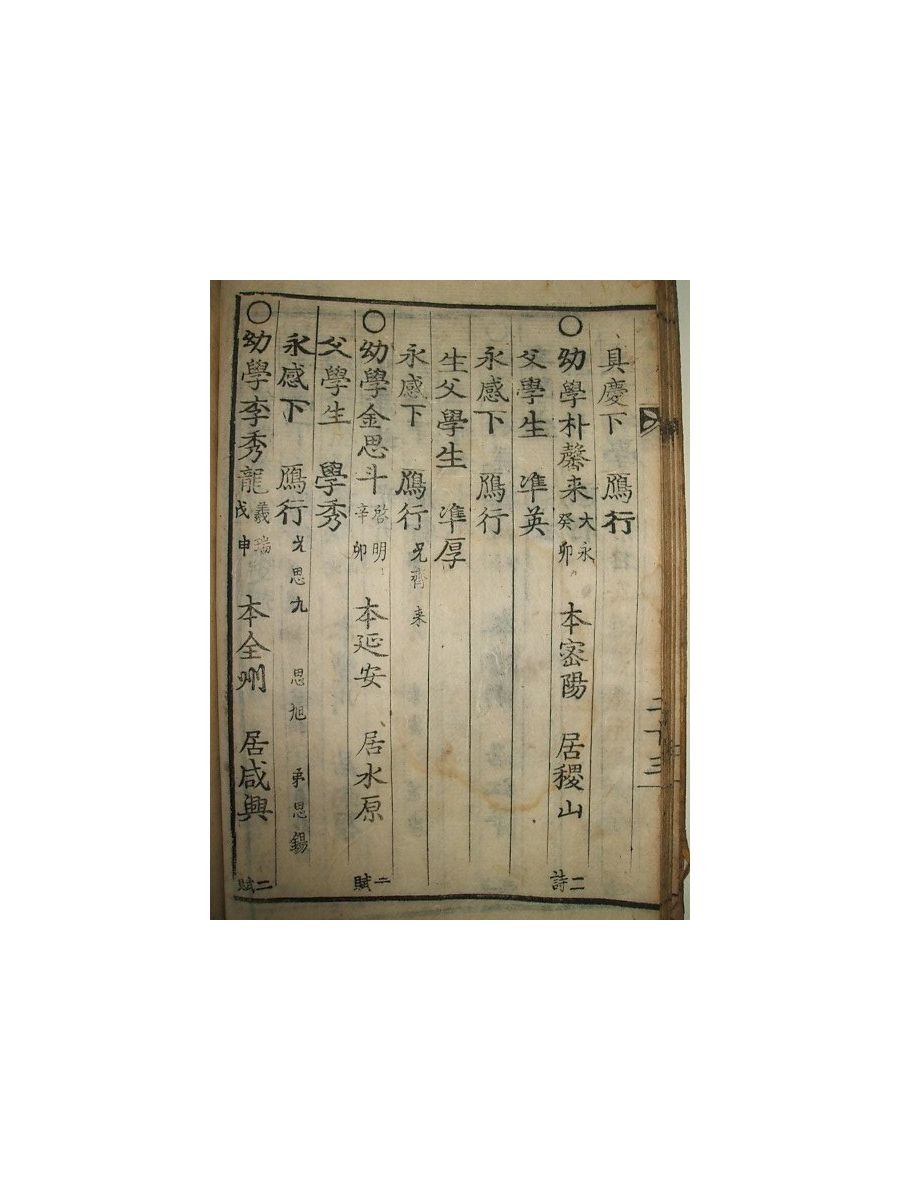 二十三
具慶下 鴈行
○幼學朴馨来 大永 癸卯 本密陽 居稷山 二詩
父學生 凖英
永感下 鴈行
生父學生 凖厚
永感下 鴈行 兄齊来
○幼學金思斗 啓明 辛卯 本延安 居水原 二賦
父學生 學秀
永感下 鴈行 兄思九 思旭 弟思錫
○幼學李秀龍 羲瑞 戊申 本全州 居咸興 二賦